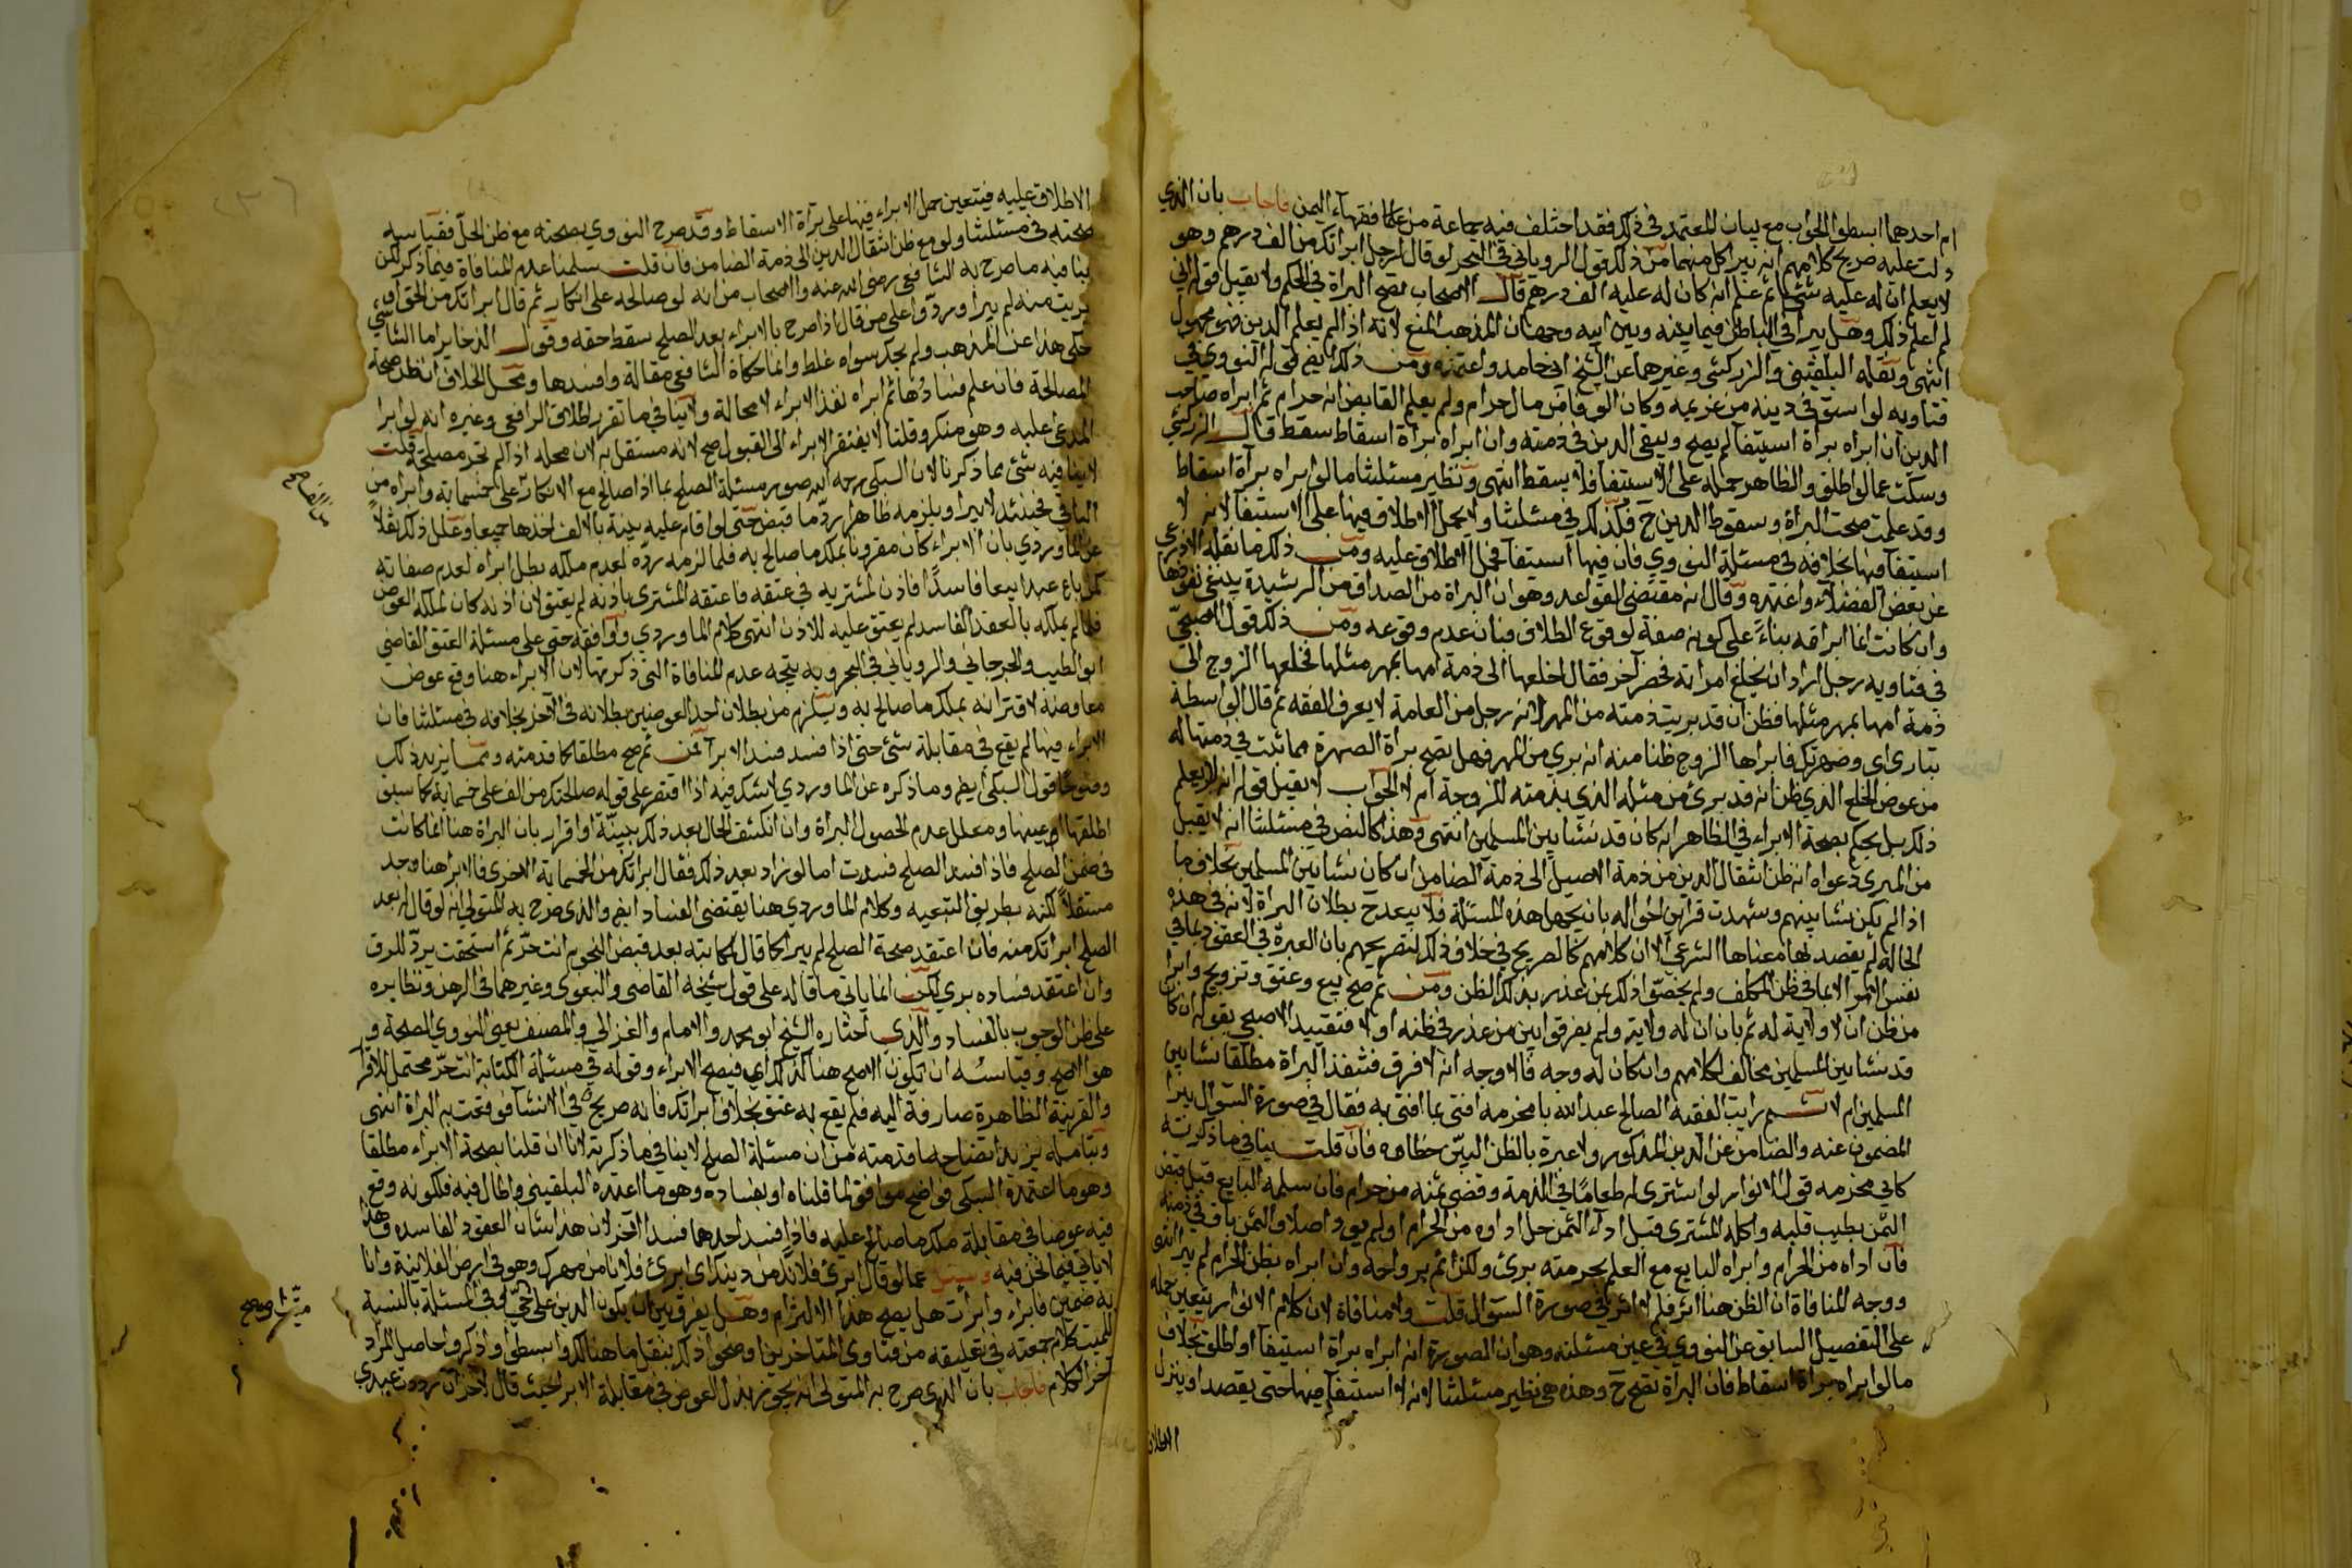 ام احدهما ابسطوا الجواب مع بيان المعتمد في ذلك فقد اختلف فيه جماعة من علما فقهاء اليمن فاجاب بان الذي
دلت عليه صريح كلامهم انه يبرا كل منهما فمن ذلك قول الروياني في البحر لو قال لرجل ابراتك من الف درهم وهو
لا يعلم ان له عليه شيئا ثم علم انه كان له عليه الف درهم قال الاصحاب تصح البراة في الحكم ولا يقبل قوله اني
لم اعلم ذلك وهل يبرا في الباطن فيما بينه وبين ابيه وجهان المذهب المنع لانه اذا لم يعلم الدين فهو مجهول
انتهى ونقله البلقيني والزركشي وغيرهما عن الشيخ ابي حامد واعتمده ومن ذلك ايضا قول النووي في
فتاويه لو استوفى دينه من غريمه وكان الوفا من مال حرام ولم يعلم القابض انه حرام ثم ابراه صاحب
الدين ان ابراه براة استيفا لم يصح ويبقى الدين في ذمته وان ابراه براة اسقاط سقط قال الزركشي
وسكت عما لو اطلق والظاهر حمله على الاستيفا فلا يسقط انتهى ونظير مسئلتنا ما لو ابراه براة اسقاط
وقد علمت صحت البراة وسقوط الدين ح فكذلك في مسئلتنا ولا يحمل الاطلاق فيها على الاستيفا لانه لا
استيفا فيها بخلافه في مسئلة النووي فان فيها استيفا فحمل الاطلاق عليه ومن ذلك ما نقله الاذرعي
عن بعض الفضلاء واعتمده وقال انه مقتضى القواعد وهو ان البراة من الصداق من الرشيدة ينبغي نفوذها
وان كانت انما ابراته بناءً على كونه صفة لوقوع الطلاق فبان عدم وقوعه ومن ذلك قول الاصبحي
في فتاويه رجل اراد ان يخلع امراته فحضر آخر فقال اخلعها الى ذمة امها بمهر مثلها فخلعها الزوج الى
ذمة امها بمهر مثلها فظن ان قد بريت ذمته من المهر لانه رجل من العامة لا يعرف الفقه ثم قال الواسطة
تبارى اي وصهرتك فابراها الزوج ظنا منه انه بري من المهر فهل تصح براة الصهرة مما ثبت في ذمتها له
من عوض الخلع الذي ظن انه قد برئ من مثله الذي بذمته للزوجة ام لا الجواب لا يقبل قوله انه لا يعلم
ذلك بل يحكم بصحة الابراء في الظاهر ان كان قد نشا بين المسلمين انتهى وهذا كالنص في مسئلتنا انه لا يقبل
من المبرى دعواه انه ظن انتقال الدين من ذمة الاصيل الى ذمة الضامن ان كان نشا بين المسلمين بخلاف ما
اذا لم يكن نشا بينهم وشهدت قراين احواله بانه يجهل هذه المسئلة فلا يبعد ح بطلان البراة لانه في هذه
الحالة لم يقصد لها معناها الشرعي الا ان كلامهم كالصريح في خلاف ذلك لتصريحهم بان العبرة في العقود بما في
نفس الامر لا بما في ظن المكلف ولم يخصوا ذلك بمن عذر بذلك الظن ومن ثم صح بيع وعتق وتزويج وابرا
من ظن ان لا ولاية له ثم بان ان له ولاية ولم يفرقوا بين من عذر في ظنه او لا فتقييد الاصبحي بقوله ان كا
قد نشا بين المسلمين مخالف لكلامهم وان كان له وجه فالاوجه انه لا فرق فتنفذ البراة مطلقا نشا بين
المسلمين ام لا ثم رايت الفقيه الصالح عبد الله با مخرمه افتى بما افتى به فقال في صورة السؤال يبرا
المضمون عنه والضامن عن الدين المذكور ولا عبرة بالظن البين خطاه فان قلت ينافي ما ذكرته
كابي مخرمه قول الانوار لو اشترى طعاما في الذمة وقضى ثمنه من حرام فان سلمه البايع قبل قبض
الثمن بطيب قلبه واكله المشترى قبل ادآء الثمن حل اداه من الحرام او لم يود اصلا والثمن باق في ذمته
فان اداه من الحرام وابراه البايع مع العلم بحرمته برئ ولكن اثم بروايحه وان ابراه بظن الحرام لم يبرا انتهى
ووجه المنافاة ان الظن هنا اثر فلم لا اثر في صورة السؤال قلت ولا منافاة لان كلام الانوار يتعين حمله
على التفصيل السابق عن النووي في عين مسئلته وهو ان الصورة انه ابراه براة استيفا او اطلق بخلاف
ما لو ابراه براة اسقاط فان البراة تصح ح وهذه هي نظير مسئلتنا لانه لا استيفا فيها حتى يقصد او ينزل
الاطلاق
الاطلاق عليه فيتعين حمل الابراء فيها على براة الاسقاط وقد صرح النووي بصحته مع ظن الحل فقياسه
صحته في مسئلتنا ولو مع ظن انتقال الدين الى ذمة الضامن فان قلت سلمنا عدم المنافاة فيما ذكر لكن
ينافيه ما صرح به الشافعي رضي الله عنه والاصحاب من انه لو صالحه على انكار ثم قال ابراتك من الحق او
بريت منه لم يبرا وردوا على من قال اذا صرح بالابراء بعد الصلح سقط حقه وقول الذخاير اما الشاشي
حكى هذا عن المذهب ولم يحك سواه غلط وانما حكاه الشافعي مقالة وافسدها ومحل الخلاف ان ظن صحة
المصالحة فان علم فسادها ثم ابراه نفذ الابراء لا محالة ولا ينافي ما تقرر اطلاق الرافعي وغيره انه لو ابرا
المدعى عليه وهو منكر وقلنا لا يفتقر الابراء الى القبول صح لانه مستقل به لان محله اذا لم تجر مصلحة قلت
لا ينافيه شئ مما ذكرنا لان السبكي رحمه الله صور مسئلة الصلح بما اذا صالح مع الانكار على خمسماية وابراه من
الباقي فحينئذ لا يبرا ويلزمه ظاهرا رد ما قبض حتى لو اقام عليه بينة بالالف اخذها جميعا وعلل ذلك نقلاً
عن الماوردي بان الابراء كان مقرونا بملك ما صالح به فلما لزمه رده لعدم ملكه بطل ابراه لعدم صفاته
كمن باع عبدا بيعا فاسدًا فاذن لمشتريه في عتقه فاعتقه المشترى باذنه لم يعتق لان اذنه كان لملكه العوض
فلما لم يملكه بالعقد الفاسد لم يعتق عليه للاذن انتهى كلام الماوردي ووافقه حتى على مسئلة العتق القاضي
ابو الطيب والجرجاني والروياني في البحر وبه يتجه عدم المنافاة التي ذكرتها لان الابراء هنا وقع عوض
معاوضة لاقترانه بملك ما صالح به ويلزم من بطلان احد العوضين بطلانه في الآخر بخلافه في مسئلتنا فان
الابراء فيها لم يقع في مقابلة شئ حتى اذا فسد فسد الابراء فمن ثم صح مطلقا كما قدمته ومما يزيد ذلك
وضوحًا قول السبكي ايضا وما ذكره عن الماوردي لا شك فيه اذا اقتصر على قوله صالحتك من الف على خمسماية كما سبق
اطلقها او عينها ومعلل عدم لحصول البراة وان انكشف الحال بعد ذلك ببينة او اقرار بان البراة هنا انما كانت
في ضمن الصلح فاذا فسد الصلح فسدت اما لو زاد بعد ذلك فقال ابراتك من الخمسماية الاخرى فالابرا هنا وجد
مستقلاً لكنه بطريق التبعيه وكلام الماوردي هنا يقتضي الفساد ايضا والذي صرح به المتولي انه لو قال له بعد
الصلح ابراتك منه فان اعتقد صحة الصلح لم يبرا كما قال لمكاتبه بعد قبض النجوم انت حر ثم استحقت يرد للرق
وان اعتقد فساده بري لكن انما ياتي ما قاله على قول شيخه القاضي والبغوي وغيرهما في الرهن ونظايره
على ظن الوجوب بالفساد والذي اختاره الشيخ ابو محمد والامام والغزالي والمصنف يعني النووي الصحة و
هو الاصح وقياسه ان تكون الاصح هنا كذلك اي فيصح الابراء وقوله في مسئلة الكتابة انت حر محتمل للاقرا
والقرينة الظاهرة صارفة اليه فلم يقع به عتق بخلاف ابراتك فانه صريح في الانشا فوقعت به البراة انتهى
وبتامله يزيد اتضاح ما قدمته من ان مسئلة الصلح لا ينافي ما ذكرته لانا ان قلنا بصحة الابراء مطلقا
وهو ما اعتمده السبكي فواضح موافق لما قلناه او بفساده وهو ما اعتمده البلقيني والمال فيه فلكونه وقع
فيه عوضا في مقابلة ملك ما صالح عليه فاذا فسد احدهما فسد الآخر لان هذا شان العقود الفاسده وهذا
لا ياتي فيما نحن فيه وسئل عما لو قال ابرئ فلانًا من دينك اي ابرئ فلانا من مهرك وهو في ارض الفلانية وانا
به ضمين فابراه وابرات هل يصح هذا الالتزام وهل يفرق بين ان يكون الدين على حي او في المسئلة بالنسبة
للميت كلام جمعته في تعليقه من فتاوى المتاخرين وضحوا ذلك بنقل ما هنالك وابسطوا واذكروا حاصل المراد
آخر الكلام فاجاب بان الذي صرح به المتولي انه يجوز بذل العوض في مقابلة الابرا بحيث قال لآخر ان رددت عبدي